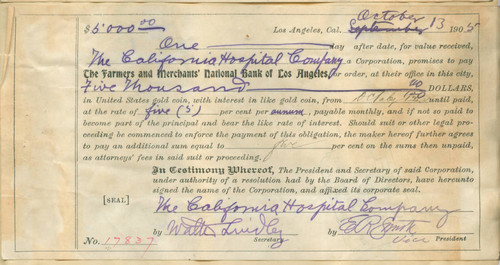 $5000.00
Los Angeles, Cal. October
September 13 1905
One day after date, for value received,
The California Hospital Company a Corporation, promises to pay
The Farmers and Merchants' National Bank of Los Angeles, or order, at their office in this city,
Five Thousand 00 DOLLARS,
in United States gold coin, with interest in like gold coin, from until paid
at the rate of five (5) per cent per annum, payable monthly, and if not so paid to
become part of the principal and bear the like rate of interest. Should suit or other legal pro-
ceeding be commenced to enforce the payment of this obligation, the maker hereof further agrees
to pay an additional sum equal to five per cent on the sums then unpaid,
as attorneys' fees in said suit or proceeding.
In Testimony Whereof, The President and Secretary of said Corporation,
under authority of a resolution had by the Board of Directors, have hereunto
signed the name of the Corporation, and affixed its corporate seal.
[SEAL]
The California Hospital Company
by Walter Lindley
Secretary
by
Vice President
No. 17827